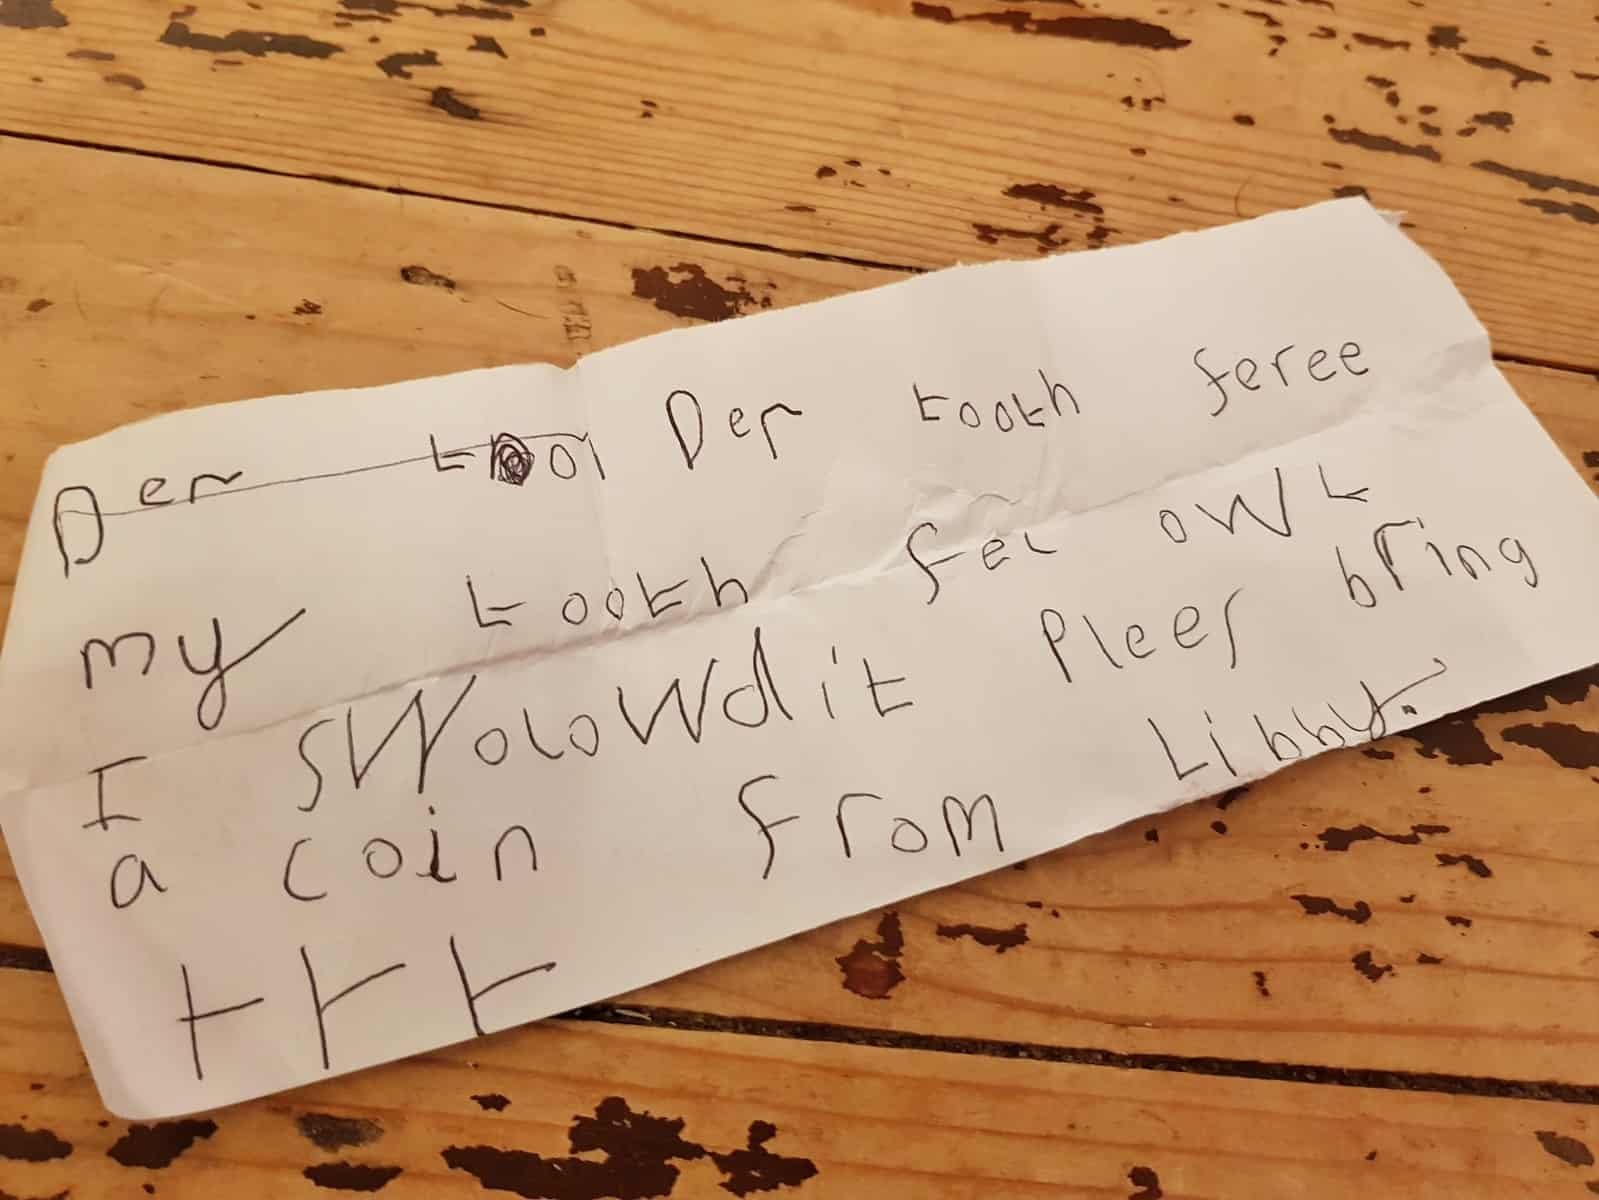 Der tooi Der tooth feree
my tooth fel owt
I swolowd it Plees bring
a coin from Libby.